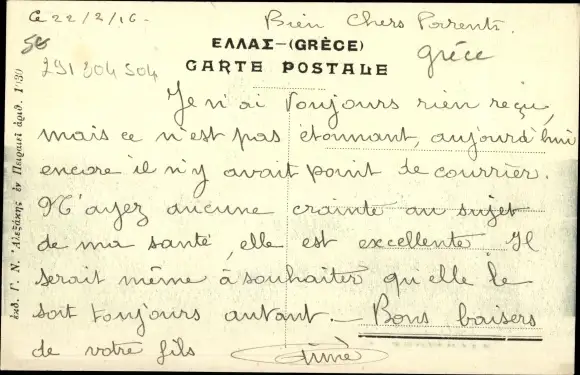 Ce 22/2/16-
Bien Chers Parents.
50
ΕΛΛΑΣ-(GRÈCE)
Grèce
291 204 504
CARTE POSTALE
Je n'ai toujours rien reçu,
mais ce n'est pas étonnant, aujourd'hui
encore il n'y avait point de courrier.
N'ayez aucune crainte au sujet
de ma santé, elle est excellente Il
serait même à souhaiter qu'elle le
soit toujours autant.- Bons baisers
de votre fils
Aimé
ἐκδ. Γ. Ν. Ἀλεξάκης ἐν Πειραιεῖ ἀριθ. 1030